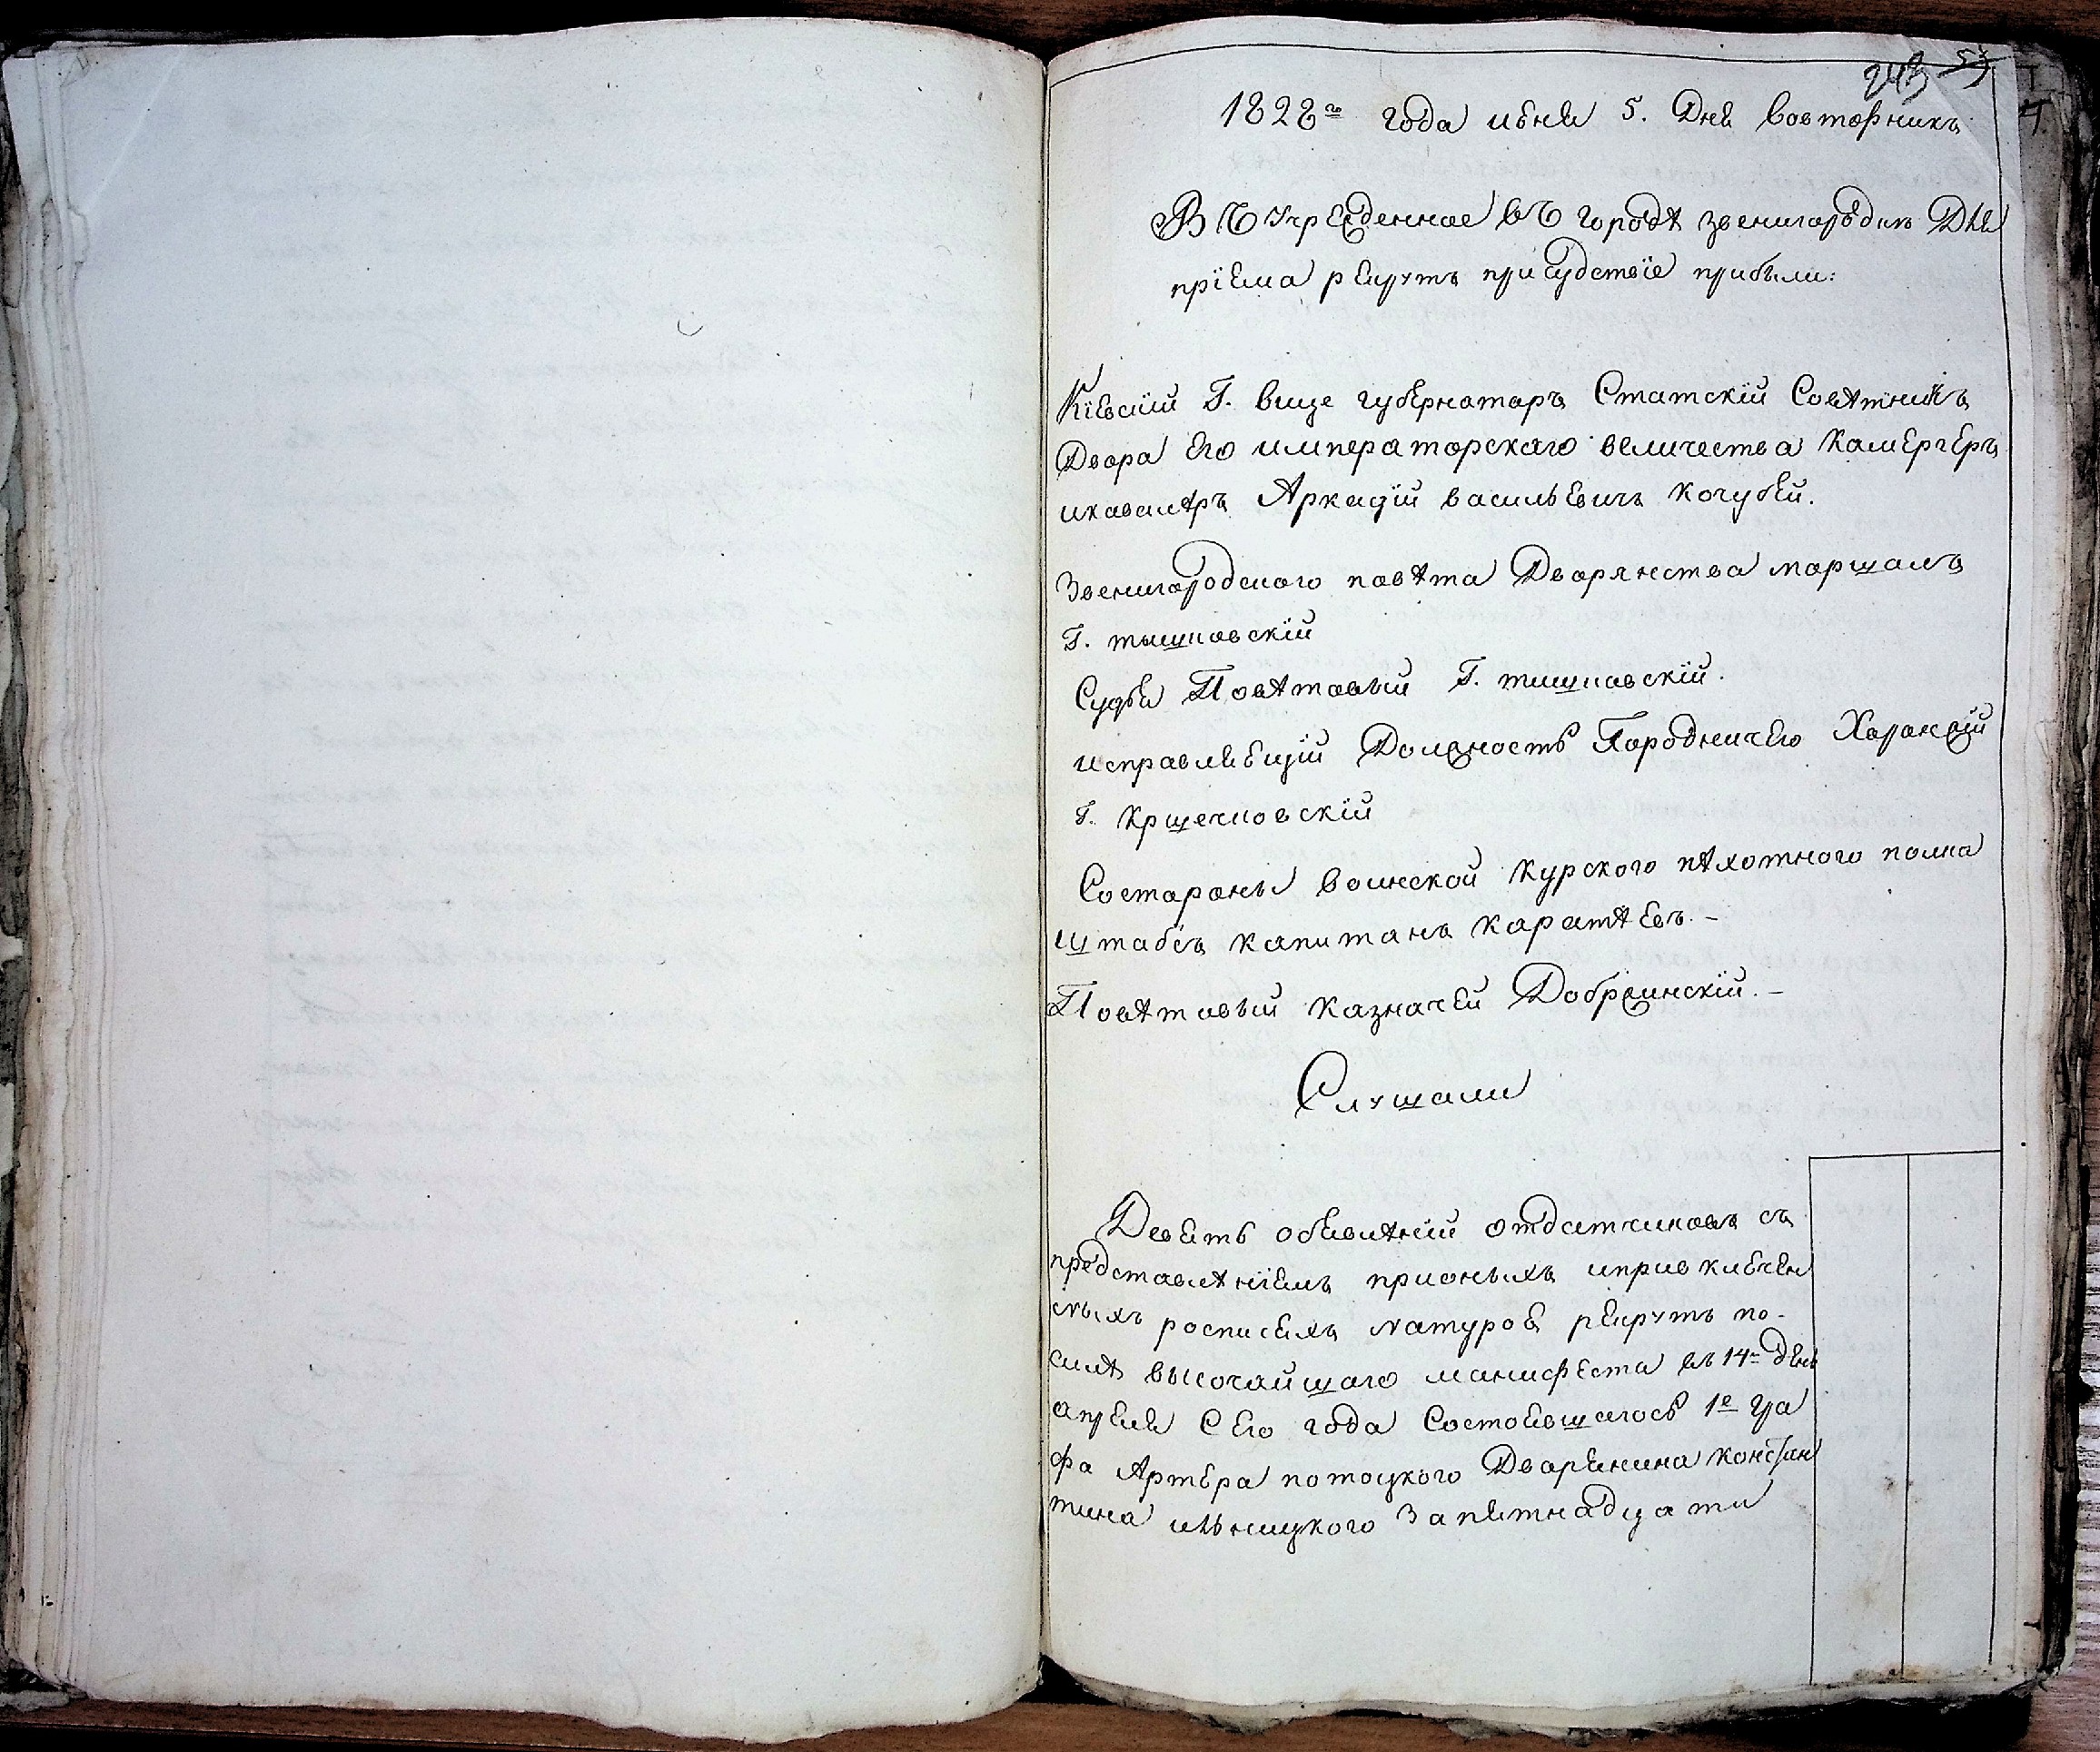 243 53
1828го года июня 5. Дня вовторникъ
Въ учрежденное въ городѣ звенигородкѣ Для
пріема рекрутъ присудствіе прибыли:
Кіевскій Г. вице губернаторъ Статскій Совѣтникъ
Двора Его императорскаго величества камергеръ
икавалѣръ Аркадій васильевичъ кочубей.
Звенигородского повѣта Дворянства маршалъ
Г. тышковскій
Судья Повѣтовый Г. тышковскій.
исправляющій Должность Городничего Хоронжій
Г. Крщечковскій
Состороны воинской курского пѣхотного полка
штабсъ капитанъ каратѣевъ. -
Повѣтовый казначей Добржинскій. -
Слушали
Девять объявлѣній отдатчиковъ съ
представлѣніемъ прионыхъ иприв ключен
ныхъ росписяхъ натурою рекрутъ по-
силѣ высочайшаго манифеста въ 14й день
апреля Сего года Состоявшагося 1е гра
фа Артура потоцкого Дворянина констан
тина ильницкого Запятнадцати